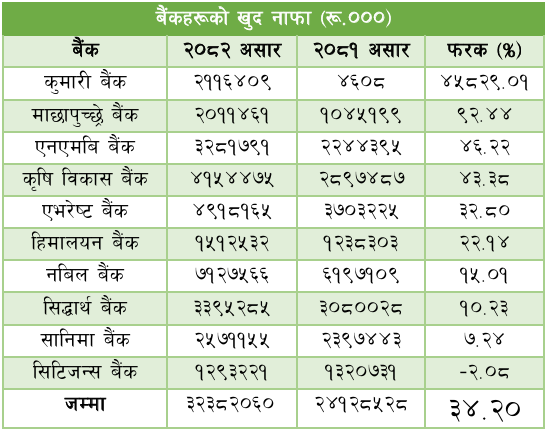 बैंकहरूको खुद नाफा (रू.०००)
बैंक २०८२ असार २०८१ असार फरक (%)
कुमारी बैंक २११६४०९ ४६०८ ४५८२९.०१
माछापुच्छ्रे बैंक २०११४६१ १०४५१९९ ९२.४४
एनएमबि बैंक ३२८१७९१ २२४४३९५ ४६.२२
कृषि विकास बैंक ४१५४४७५ २८९७४८७ ४३.३८
एभरेष्ट बैंक ४९१८१६५ ३७०३२२५ ३२.८०
हिमालयन बैंक १५१२५३२ १२३८३०३ २२.१४
नबिल बैंक ७१२७५६६ ६१९७१०९ १५.०१
सिद्धार्थ बैंक ३३९५२८५ ३०८००२८ १०.२३
सानिमा बैंक २५७११५५ २३९७४४३ ७.२४
सिटिजन्स बैंक १२९३२२१ १३२०७३१ -२.०८
जम्मा ३२३८२०६० २४१२८५२८ ३४.२०